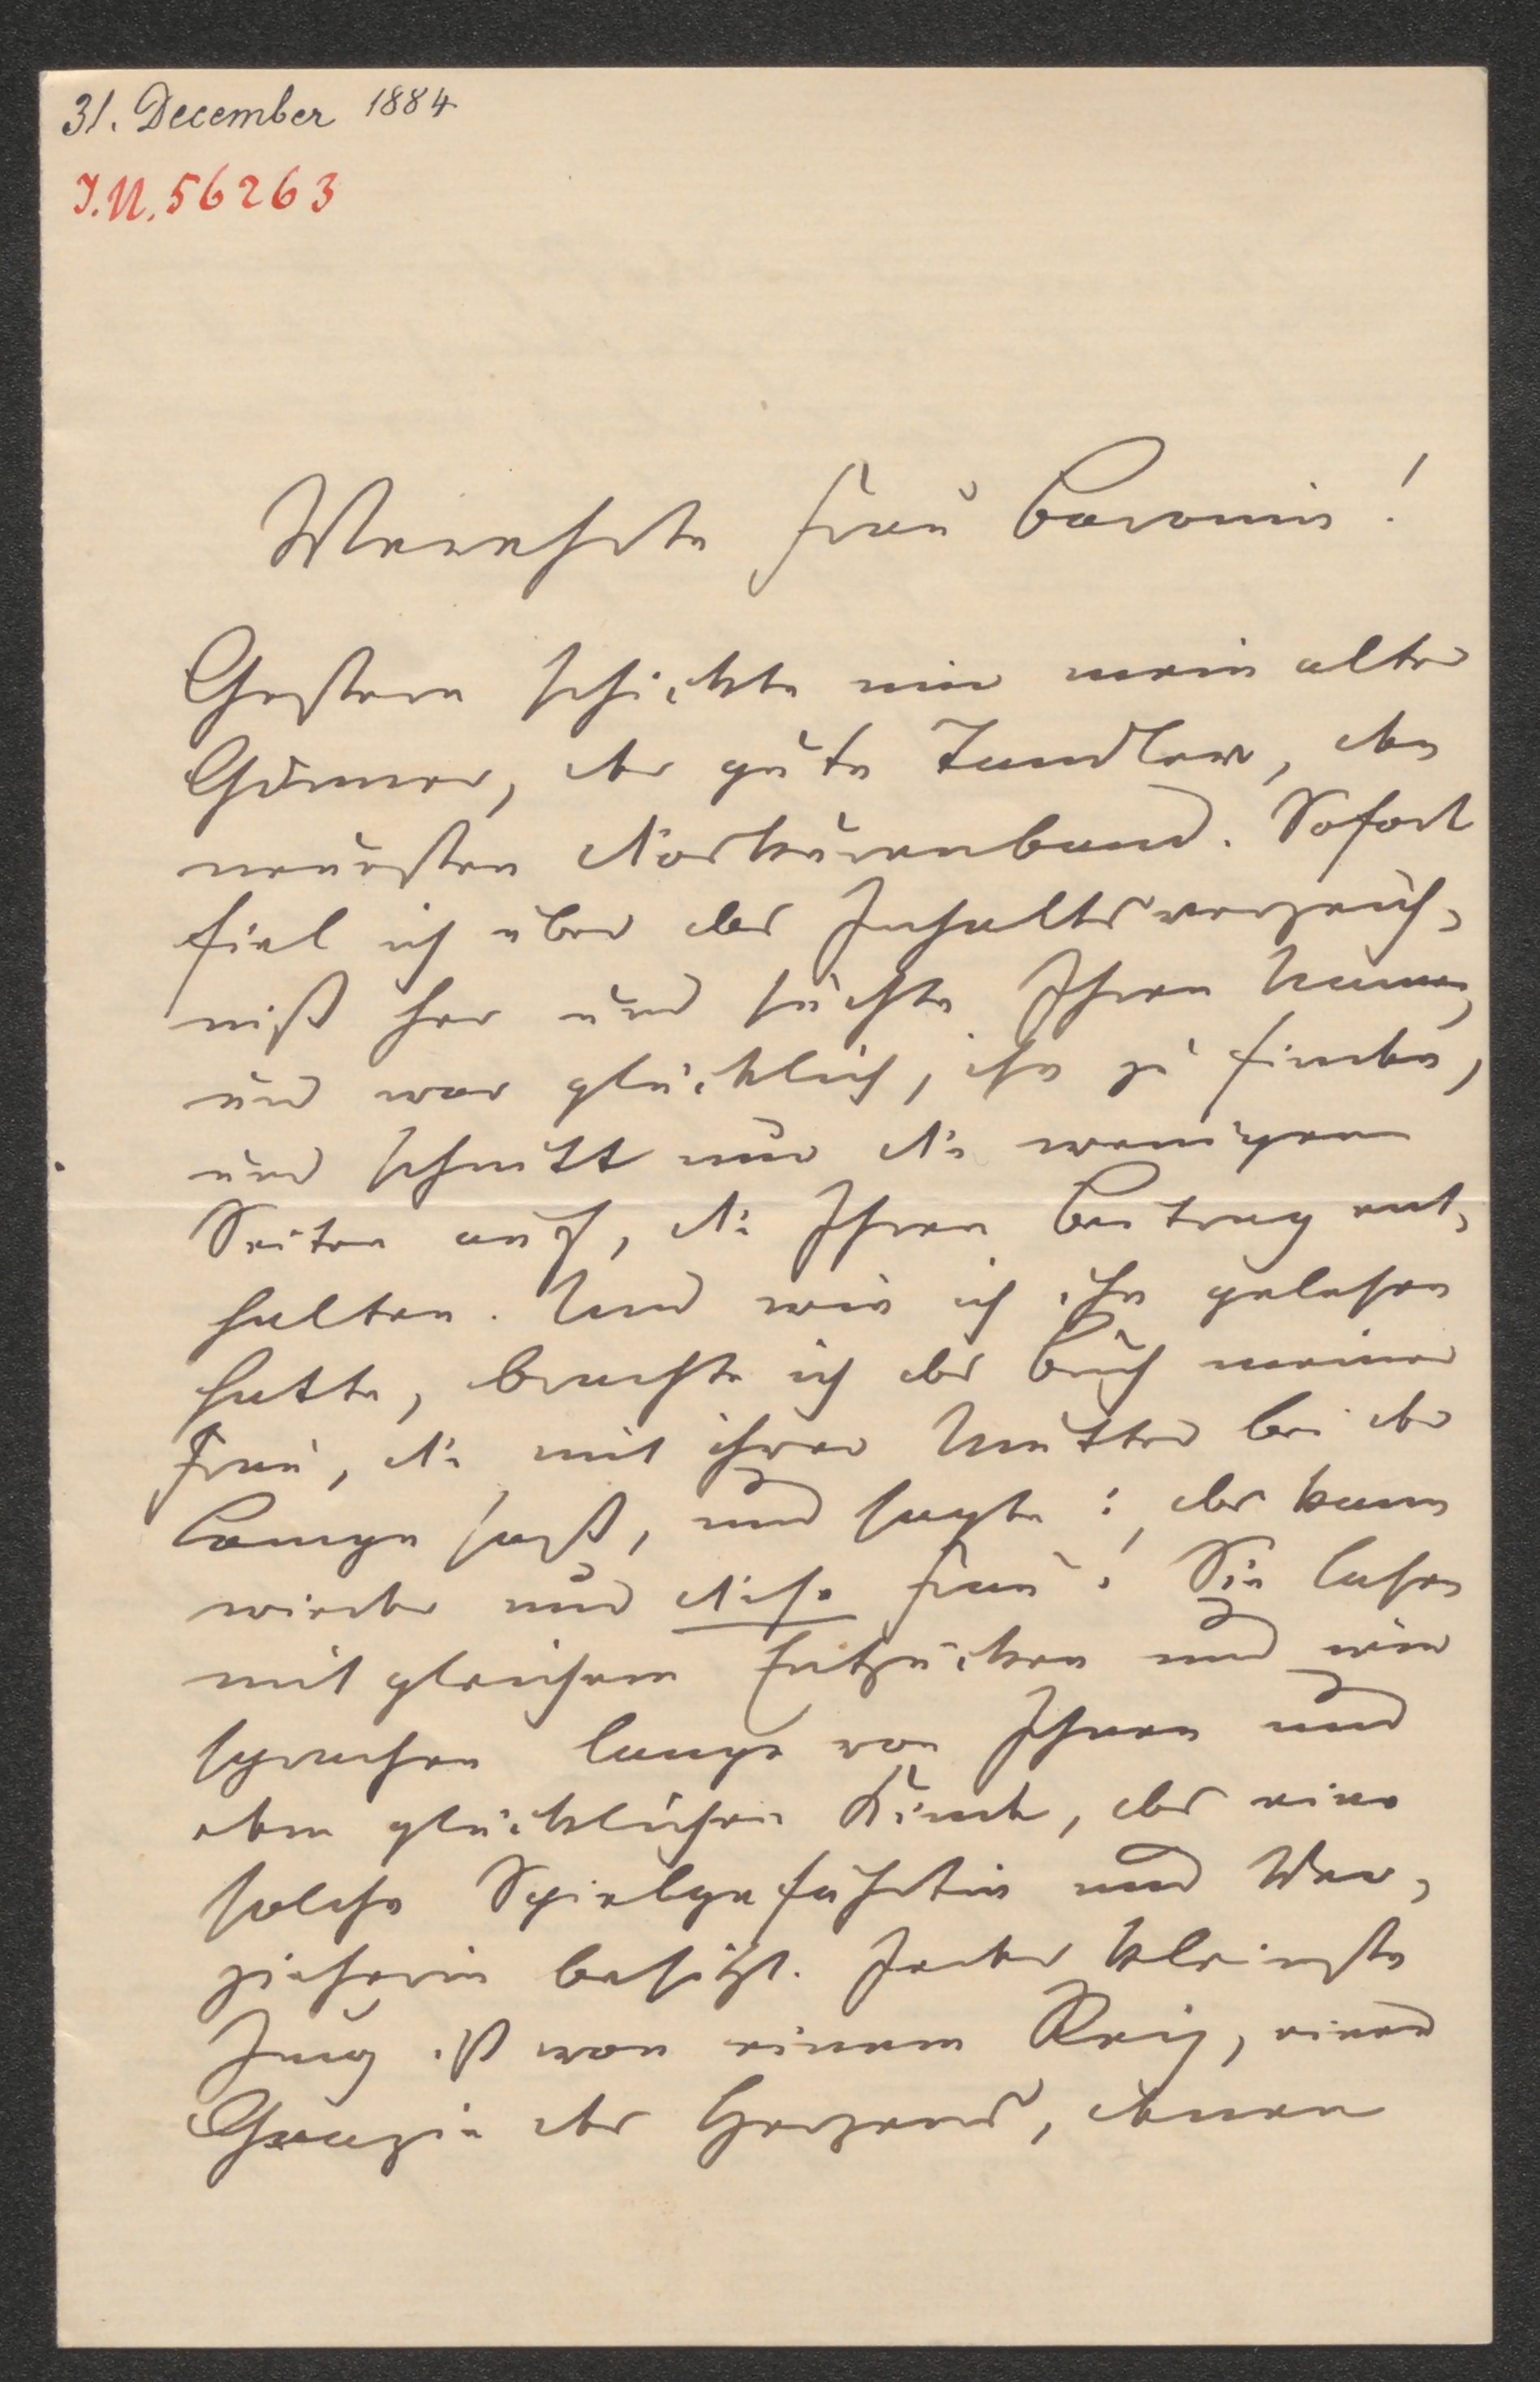 31. December 1884
I.N. 56263
Verehrte Frau Baronin!
Gestern schickte mir mein alter
Gönner, der gute Tandler, den
neuesten Dioskurenband. Sofort
fiel ich über das Inhaltsverzeich-
niß her und suchte Ihren Namen,
und war glücklich, ihn zu finden,
und schnitt nur die wenigen
Seiten auf, die Ihren Beitrag ent-
halten. Und wie ich ihn gelesen
hatte, brachte ich das Buch meiner
Frau, die mit ihrer Mutter bei der
Lampe saß, und sagte: das kann
wieder nur diese Frau! Sie lasen
mit gleichem Entzücken und wir
sprachen lange von Ihnen und
dem glücklichen Kinde, das eine
solche Spielgefährtin und Er-
zieherin besitzt. Jeder kleinste
Zug ist von einem Reiz, einer
Grazie des Herzens, denen